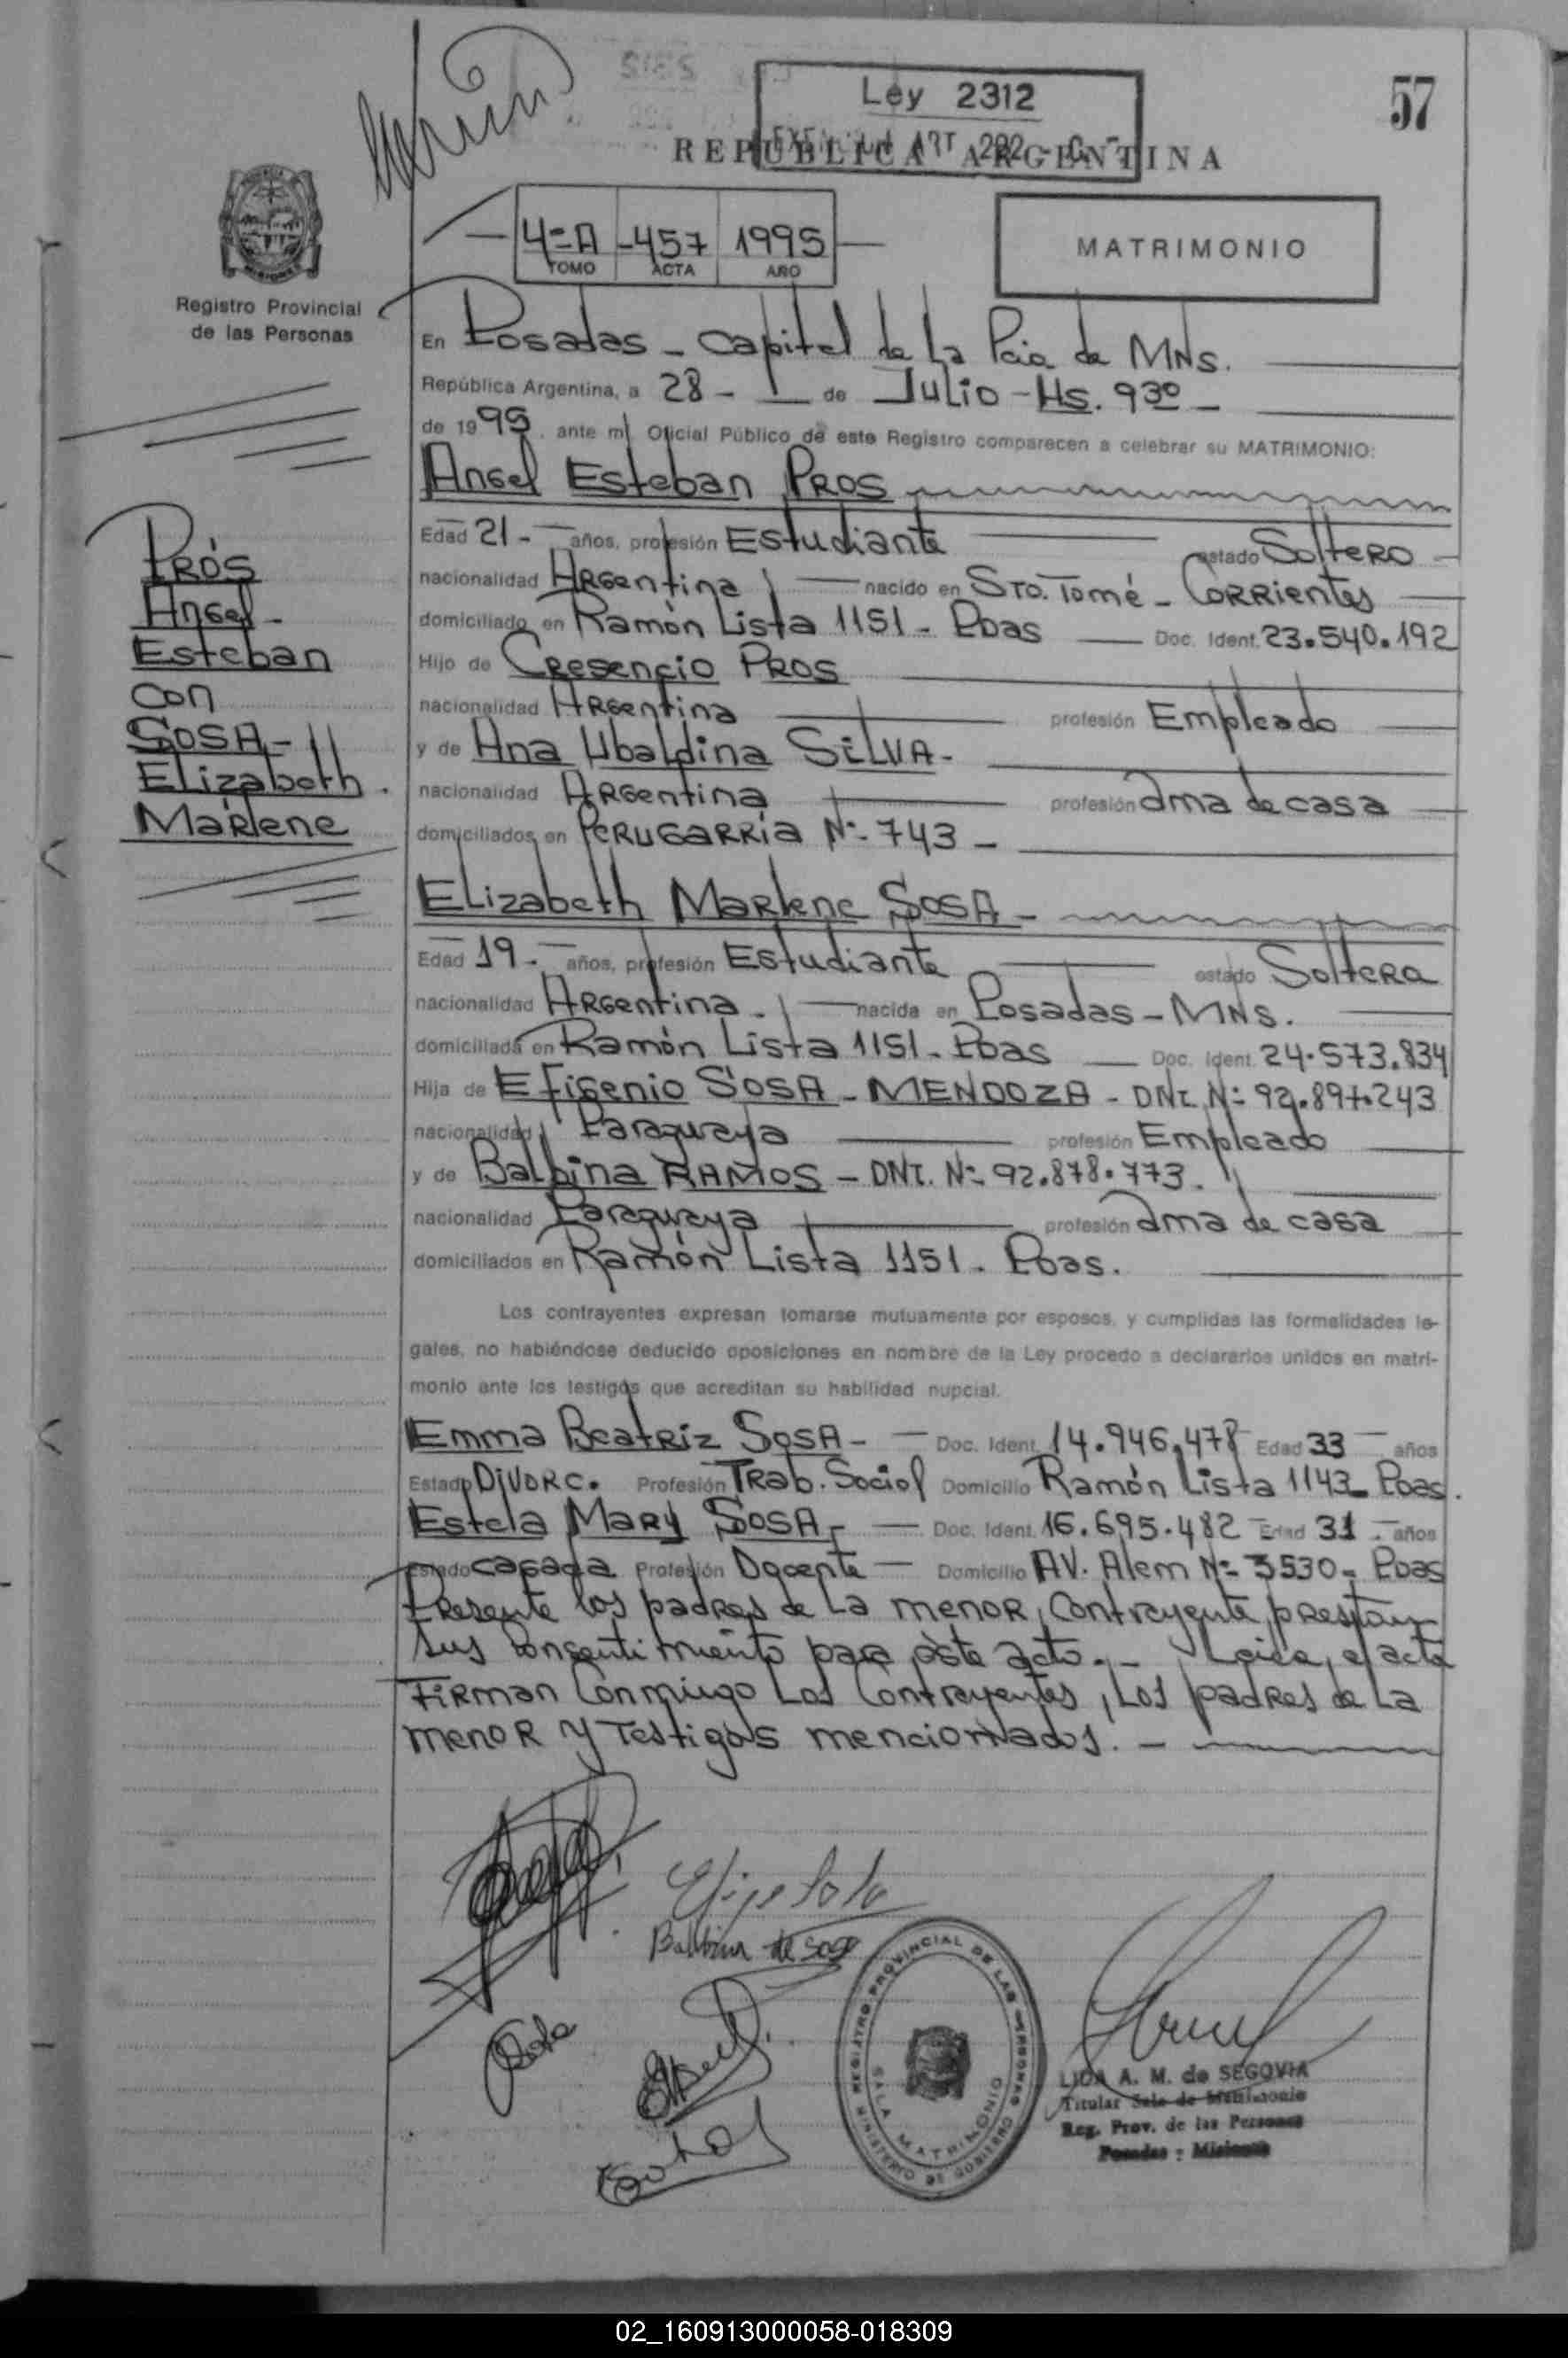 57
Ley 2312
ART 292
REPUBLICA ARGENTINA
4=A -457 1995
TOMO ACTA AÑO
MATRIMONIO
Registro Provincial
de las Personas
En Posadas - Capital de la Pcia de MNS.
República Argentina, a 28 - de Julio - Hs. 930 -
de 1995, ante mí Oficial Público de este Registro comparecen a celebrar su MATRIMONIO:
Angel Esteban PROS
Edad 21 - años, profesión Estudiante estado Soltero -
nacionalidad Argentina nacido en Sto. Tomé - Corrientes
domiciliado en Ramón Lista 1151 - Pdas Doc. Ident. 23.540.192
Hijo de Cresencio PROS
nacionalidad Argentina profesión Empleado
y de Ana Ubaldina SILVA -
nacionalidad Argentina profesión ama de casa
domiciliados en PERUGARRIA Nº 743 -
PRÓS
Angel -
Esteban
con
SOSA -
Elizabeth .
Marlene
Elizabeth Marlene SOSA -
Edad 19 - años, profesión Estudiante estado Soltera
nacionalidad Argentina - nacida en Posadas - MNS.
domiciliada en Ramón Lista 1151 - Pdas Doc. Ident. 24.573.834
Hija de Efigenio SOSA - MENDOZA - DNI Nº 92.897.243
nacionalidad Paraguaya profesión Empleado
y de Balbina RAMOS - DNI. Nº 92.878.773.
nacionalidad Paraguaya profesión ama de casa
domiciliados en Ramón Lista 1151 - Pdas.
Los contrayentes expresan tomarse mutuamente por esposos, y cumplidas las formalidades le-
gales, no habiéndose deducido oposiciones en nombre de la Ley procedo a declararlos unidos en matri-
monio ante los testigos que acreditan su habilidad nupcial.
Emma Beatriz SOSA - Doc. Ident. 14.946.478 Edad 33 años
Estado Divorc. Profesión Trab. Social Domicilio Ramón Lista 1143 - Pdas.
Estela Mary SOSA - Doc. Ident. 16.695.482 Edad 31 - años
Estado casada Profesión Docente Domicilio AV. Alem Nº 3530 - Pdas
Presente los padres de la menor, contrayente prestan
sus consentimiento para éste acto. - Leida el acta
Firman conmiugo los contrayentes, los padres de la
menor y testigos mencionados. -
Balbina de Sosa
REGISTRO PROVINCIAL DE LAS PERSONAS
SALA MATRIMONIO
MINISTERIO DE GOBIERNO
LIDA A. M. de SEGOVIA
Titular Sala de Matrimonio
Reg. Prov. de las Personas
Posadas - Misiones
02_160913000058-018309